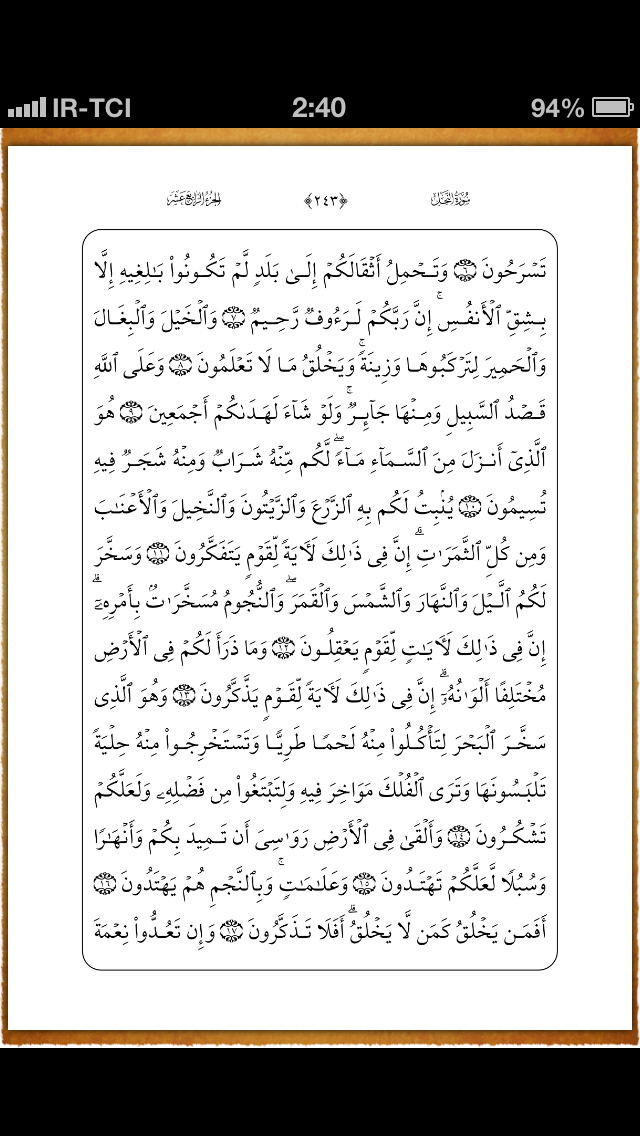 IR-TCI 2:40 94%
سُورَةُ النَّحْلِ ﴿٢٤٣﴾ الجُزْءُ الرَّابِعَ عَشَرَ
تَسْرَحُونَ ٦ وَتَحْمِلُ أَثْقَالَكُمْ إِلَىٰ بَلَدٍ لَّمْ تَكُونُوا۟ بَـٰلِغِيهِ إِلَّا
بِشِقِّ ٱلْأَنفُسِ ۚ إِنَّ رَبَّكُمْ لَرَءُوفٌ رَّحِيمٌ ٧ وَٱلْخَيْلَ وَٱلْبِغَالَ
وَٱلْحَمِيرَ لِتَرْكَبُوهَا وَزِينَةً ۚ وَيَخْلُقُ مَا لَا تَعْلَمُونَ ٨ وَعَلَى ٱللَّهِ
قَصْدُ ٱلسَّبِيلِ وَمِنْهَا جَآئِرٌ ۚ وَلَوْ شَآءَ لَهَدَىٰكُمْ أَجْمَعِينَ ٩ هُوَ
ٱلَّذِىٓ أَنزَلَ مِنَ ٱلسَّمَآءِ مَآءً ۖ لَّكُم مِّنْهُ شَرَابٌ وَمِنْهُ شَجَرٌ فِيهِ
تُسِيمُونَ ١٠ يُنۢبِتُ لَكُم بِهِ ٱلزَّرْعَ وَٱلزَّيْتُونَ وَٱلنَّخِيلَ وَٱلْأَعْنَـٰبَ
وَمِن كُلِّ ٱلثَّمَرَٰتِ ۗ إِنَّ فِى ذَٰلِكَ لَـَٔايَةً لِّقَوْمٍ يَتَفَكَّرُونَ ١١ وَسَخَّرَ
لَكُمُ ٱلَّيْلَ وَٱلنَّهَارَ وَٱلشَّمْسَ وَٱلْقَمَرَ ۖ وَٱلنُّجُومُ مُسَخَّرَٰتٌۢ بِأَمْرِهِۦٓ ۗ
إِنَّ فِى ذَٰلِكَ لَـَٔايَـٰتٍ لِّقَوْمٍ يَعْقِلُونَ ١٢ وَمَا ذَرَأَ لَكُمْ فِى ٱلْأَرْضِ
مُخْتَلِفًا أَلْوَٰنُهُۥٓ ۗ إِنَّ فِى ذَٰلِكَ لَـَٔايَةً لِّقَوْمٍ يَذَّكَّرُونَ ١٣ وَهُوَ ٱلَّذِى
سَخَّرَ ٱلْبَحْرَ لِتَأْكُلُوا۟ مِنْهُ لَحْمًا طَرِيًّا وَتَسْتَخْرِجُوا۟ مِنْهُ حِلْيَةً
تَلْبَسُونَهَا وَتَرَى ٱلْفُلْكَ مَوَاخِرَ فِيهِ وَلِتَبْتَغُوا۟ مِن فَضْلِهِۦ وَلَعَلَّكُمْ
تَشْكُرُونَ ١٤ وَأَلْقَىٰ فِى ٱلْأَرْضِ رَوَٰسِىَ أَن تَمِيدَ بِكُمْ وَأَنْهَـٰرًا
وَسُبُلًا لَّعَلَّكُمْ تَهْتَدُونَ ١٥ وَعَلَـٰمَـٰتٍ ۚ وَبِٱلنَّجْمِ هُمْ يَهْتَدُونَ ١٦
أَفَمَن يَخْلُقُ كَمَن لَّا يَخْلُقُ ۗ أَفَلَا تَذَكَّرُونَ ١٧ وَإِن تَعُدُّوا۟ نِعْمَةَ